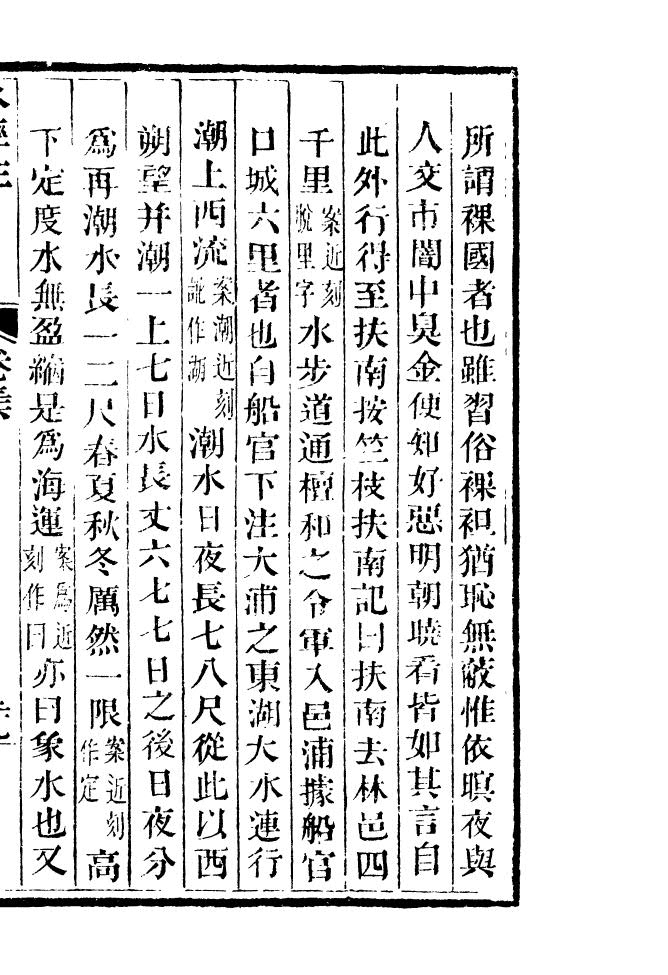 所謂裸國者也雖習俗裸袒猶恥無蔽惟依暝夜與
人交市闇中臭金便知好惡明朝曉看皆如其言自
此外行得至扶南按竺枝扶南記曰扶南去林邑四
千里案近刻脫里字水步道通檀和之令軍入邑浦據船官
口城六里者也自船官下注大浦之東湖大水連行
潮上西流案潮近刻訛作湖潮水日夜長七八尺從此以西
朔望并潮一上七日水長丈六七七日之後日夜分
爲再潮水長一二尺春夏秋冬厲然一限案近刻作定高
下定度水無盈縮是爲海運案爲近刻作曰亦曰象水也又